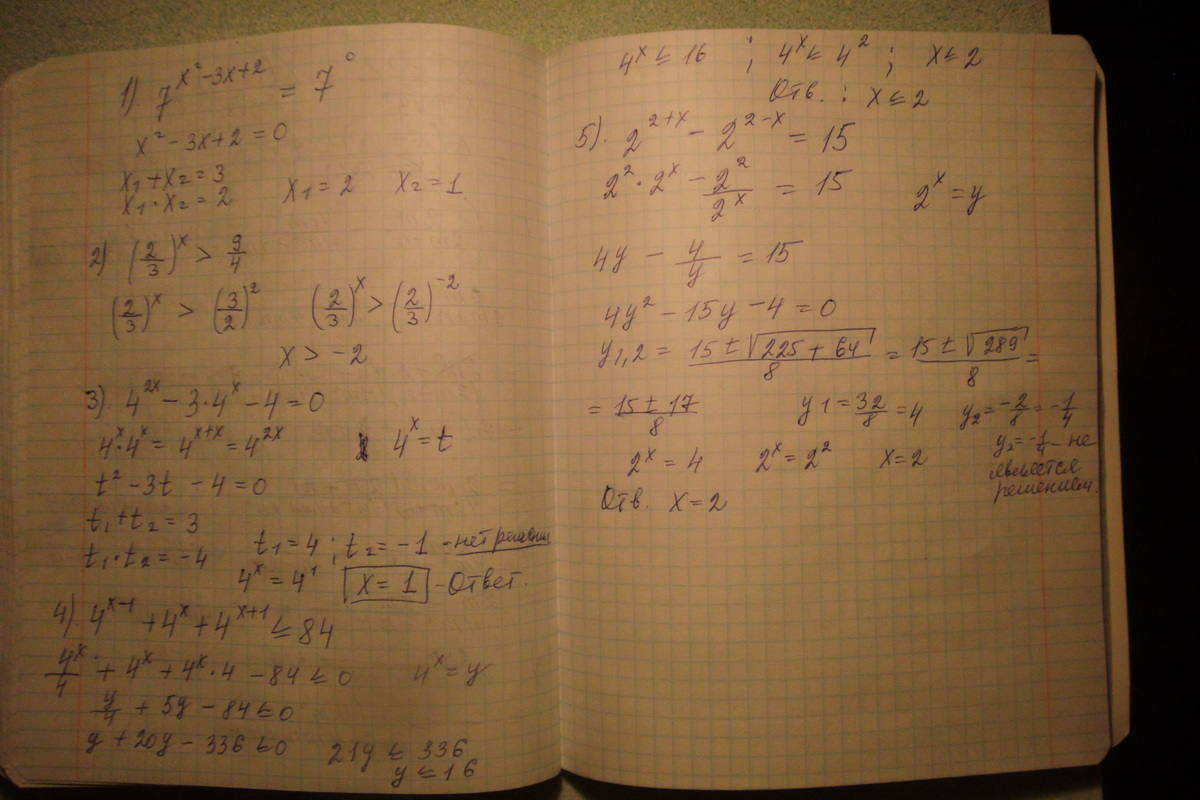 1) 7^(x²-3x+2) = 7^0
x² - 3x + 2 = 0
x₁ + x₂ = 3
x₁ · x₂ = 2    x₁ = 2    x₂ = 1
2) (2/3)^x > 9/4
(2/3)^x > (3/2)²    (2/3)^x > (2/3)^-2
x > -2
3) 4^2x - 3·4^x - 4 = 0
4^x · 4^x = 4^(x+x) = 4^2x    4^x = t
t² - 3t - 4 = 0
t₁ + t₂ = 3
t₁ · t₂ = -4    t₁ = 4 ; t₂ = -1 - нет решения
4^x = 4^1    x = 1 - Ответ.
4). 4^(x-1) + 4^x + 4^(x+1) ≤ 84
4^x/4 + 4^x + 4^x · 4 - 84 ≤ 0    4^x = y
y/4 + 5y - 84 ≤ 0
y + 20y - 336 ≤ 0    21y ≤ 336
y ≤ 16
4^x ≤ 16 ; 4^x ≤ 4² ; x ≤ 2
Отв. : x ≤ 2
5). 2^(2+x) - 2^(2-x) = 15
2² · 2^x - 2²/2^x = 15    2^x = y
4y - 4/y = 15
4y² - 15y - 4 = 0
y₁,₂ = (15 ± √(225 + 64))/8 = (15 ± √289)/8 =
= (15 ± 17)/8    y₁ = 32/8 = 4    y₂ = -2/8 = -1/4
2^x = 4    2^x = 2²    x = 2    y₂ = -1/4 - не
является
решением.
Отв. x = 2